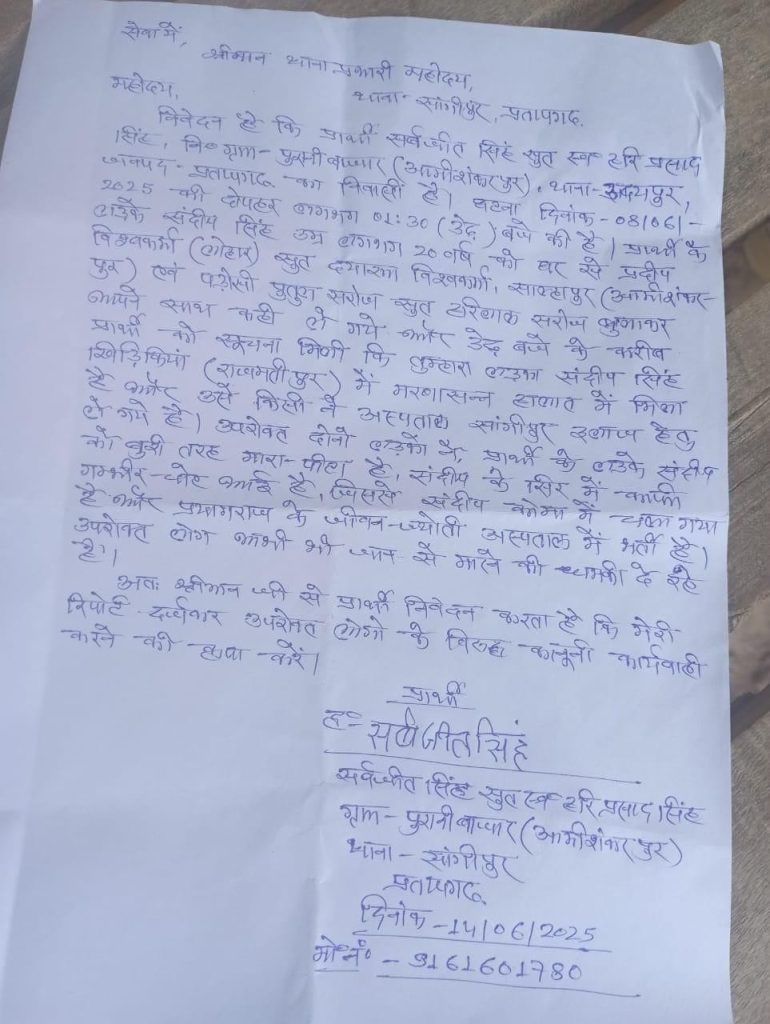 सेवा में,
श्रीमान थाना प्रभारी महोदय,
थाना- सांगीपुर, प्रतापगढ़.
महोदय,
निवेदन है कि प्रार्थी सर्वजीत सिंह सुत स्व० हरि प्रसाद
सिंह, नि० ग्राम- पुरानी बाजार (आमीशंकरपुर), थाना- उदयपुर,
जनपद- प्रतापगढ़ का निवासी है। घटना दिनांक- 08/06/-
2025 की दोपहर लगभग 01:30 (डेढ़) बजे की है। प्रार्थी के
लड़के संदीप सिंह उम्र लगभग 20 वर्ष को घर से प्रदीप
विश्वकर्मा (लोहार) सुत दयाराम विश्वकर्मा, (आमीशंकर-
पुर) एवं पड़ोसी सरोज सुत सरोज बुलाकर
अपने साथ कही ले गये और डेढ़ बजे के करीब
प्रार्थी को सूचना मिली कि तुम्हारा लड़का संदीप सिंह
खिड़किया (राजमतीपुर) में मरणासन्न हालत में मिला
है और उसे किसी ने अस्पताल सांगीपुर इलाज हेतु
ले गये है। उपरोक्त दोनो लड़को ने, प्रार्थी के लड़के संदीप
को बुरी तरह मारा-पीटा है, संदीप के सिर में काफी
गम्भीर-चोट आई है, जिससे संदीप कोमा में चला गया
है और प्रयागराज के जीवन-ज्योती अस्पताल में भर्ती है।
उपरोक्त लोग अभी भी जान से मारने की धमकी दे रहे
है।
अतः श्रीमान जी से प्रार्थी निवेदन करता है कि मेरी
रिपोर्ट दर्जकर उपरोक्त लोगो के विरुद्ध कानूनी कार्यवाही
करने की कृपा करें।
प्रार्थी
ह०- सर्वजीत सिंह
सर्वजीत सिंह सुत स्व० हरि प्रसाद सिंह
ग्राम- पुरानी बाजार (आमीशंकरपुर)
थाना- सांगीपुर
प्रतापगढ़.
दिनांक- 14/06/2025
मो०नं० - 9161601780